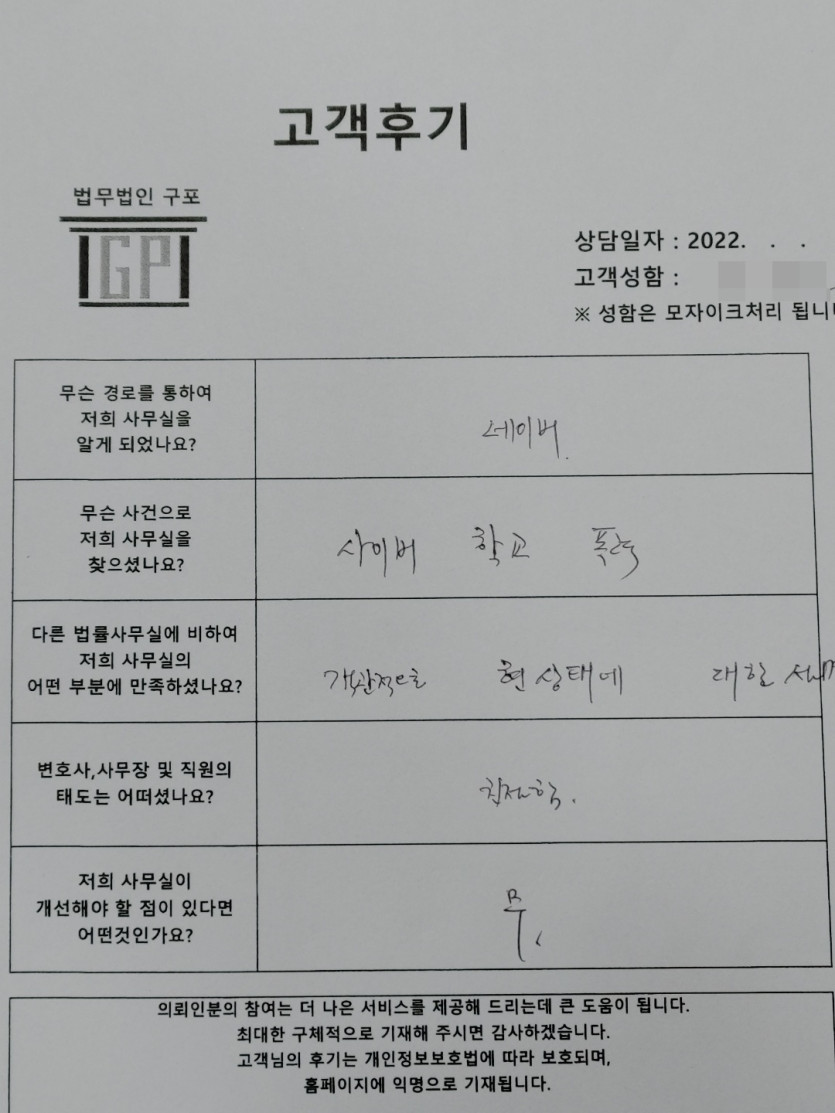 고객후기
법무법인 구포
GP
상담일자 : 2022. . .
고객성함 :
※ 성함은 모자이크처리 됩니
무슨 경로를 통하여
저희 사무실을
알게 되었나요?
네이버.
무슨 사건으로
저희 사무실을
찾으셨나요?
사이버 학교 폭력
다른 법률사무실에 비하여
저희 사무실의
어떤 부분에 만족하셨나요?
객관적으로 현 상태에 대한
변호사,사무장 및 직원의
태도는 어떠셨나요?
친절함.
저희 사무실이
개선해야 할 점이 있다면
어떤것인가요?
무.
의뢰인분의 참여는 더 나은 서비스를 제공해 드리는데 큰 도움이 됩니다.
최대한 구체적으로 기재해 주시면 감사하겠습니다.
고객님의 후기는 개인정보보호법에 따라 보호되며,
홈페이지에 익명으로 기재됩니다.